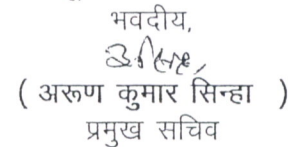 भवदीय,
( अरूण कुमार सिन्हा )
प्रमुख सचिव